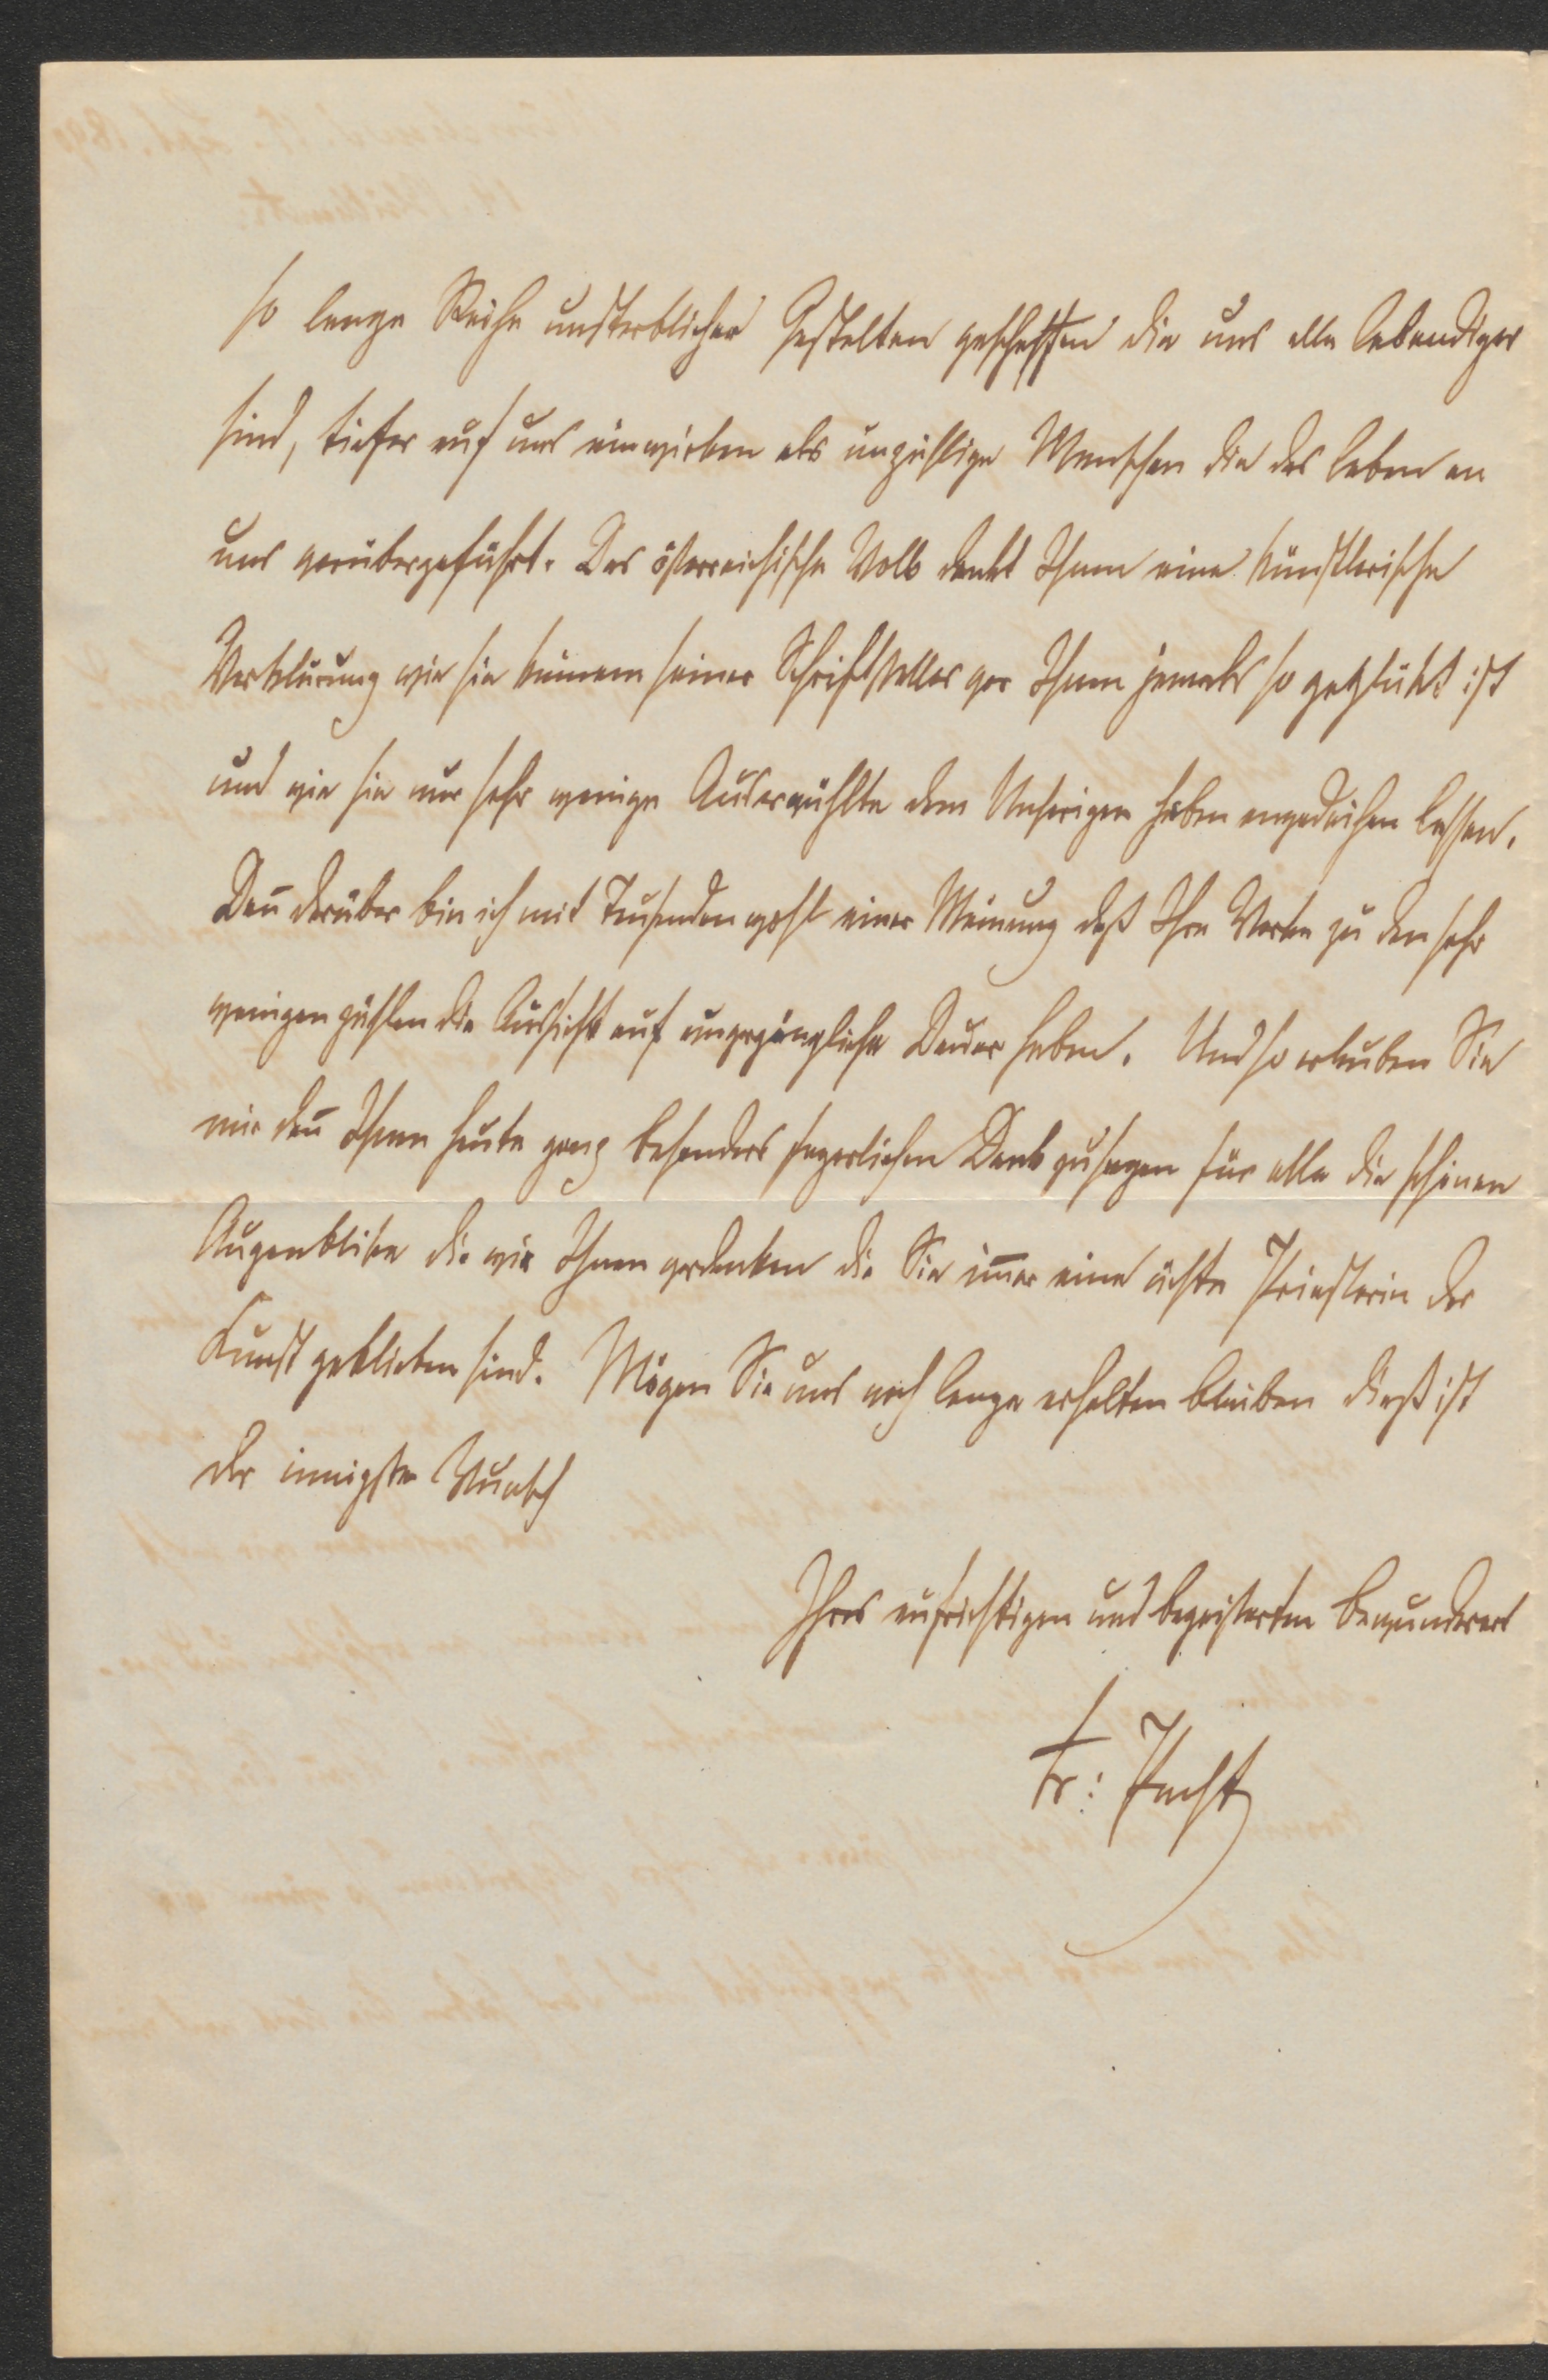 so lange Reihe unsterblicher Gestalten geschaffen die uns alle lebendiger
sind, tiefer auf uns einwirken als unzählige Menschen die das Leben an
uns vorübergeführt. Das österreichische Volk dankt Ihnen eine künstlerische
Verklärung wie sie keinem seiner Schriftsteller vor Ihnen jemals so geglückt ist
und wie sie nur sehr wenige Auserwählte dem Unserigen haben angedeihen lassen.
Den̄ darüber bin ich mit Tausenden wohl einer Meinung daß Ihre Werke zu den sehr
wenigen zählen die Aussicht auf unvergängliche Dauer haben. Und so erlauben Sie
mir den̄ Ihnen heute ganz besonders feyerlichen Dank zu sagen für alle die schönen
Augenblike die wir Ihnen verdanken die Sie im̄er eine ächte Priesterin der
Kunst geblieben sind. Mögen Sie uns noch lange erhalten bleiben dieß ist
der innigste Wunsch
Ihres aufrichtigen und begeisterten Bewunderers
Fr: Pecht